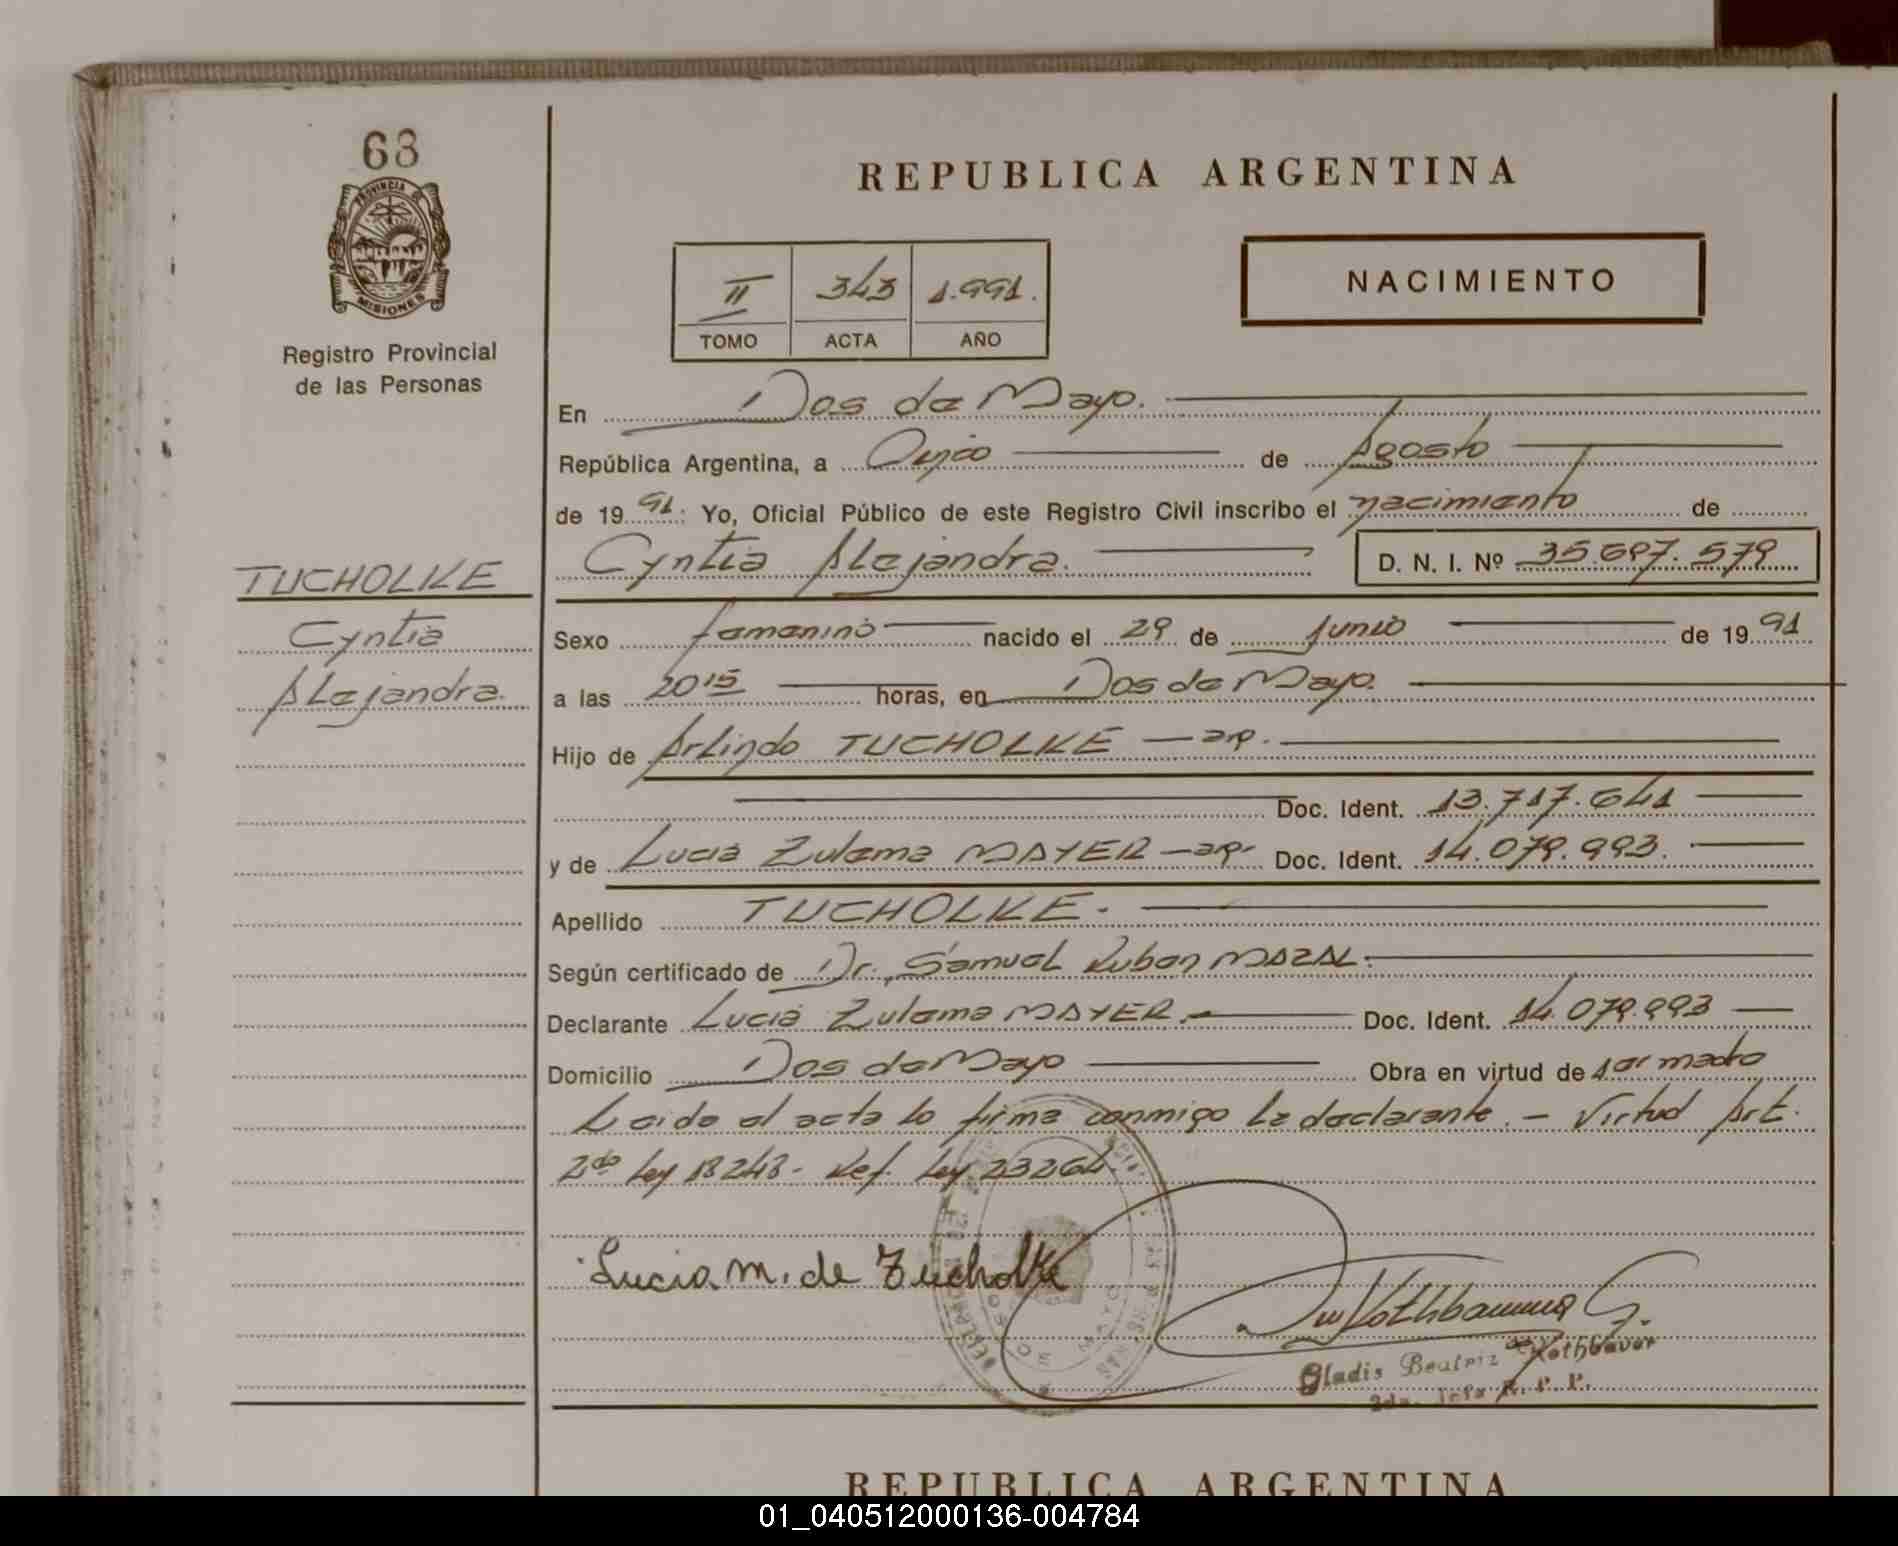 68
PROVINCIA DE
MISIONES
Registro Provincial
de las Personas
REPUBLICA ARGENTINA
NACIMIENTO
II 343 1.991.
TOMO ACTA AÑO
En Dos de Mayo.
República Argentina, a Cinco de Agosto
de 19 91: Yo, Oficial Público de este Registro Civil inscribo el nacimiento de
Cyntia Alejandra. D. N. I. Nº 35.697.579
TUCHOLKE
Cyntia
Alejandra.
Sexo femenino nacido el 29 de Junio de 19 91
a las 20 15 horas, en Dos de Mayo.
Hijo de Arlindo TUCHOLKE — ar.
Doc. Ident. 13.717.641
y de Lucia Zulema MAYER — ar. Doc. Ident. 14.079.993.
Apellido TUCHOLKE.
Según certificado de Dr. Samuel Ruben MAZAL.
Declarante Lucia Zulema MAYER. Doc. Ident. 14.079.993
Domicilio Dos de Mayo Obra en virtud de ser madre
Leida el acta lo firma conmigo la declarante. — Virtud Art.
2do Ley 18248. Ref. Ley 23264.
Lucia M. de Tucholke
Gladis Beatriz de Rothbauer
R. P. P.
REPUBLICA ARGENTINA
01_040512000136-004784